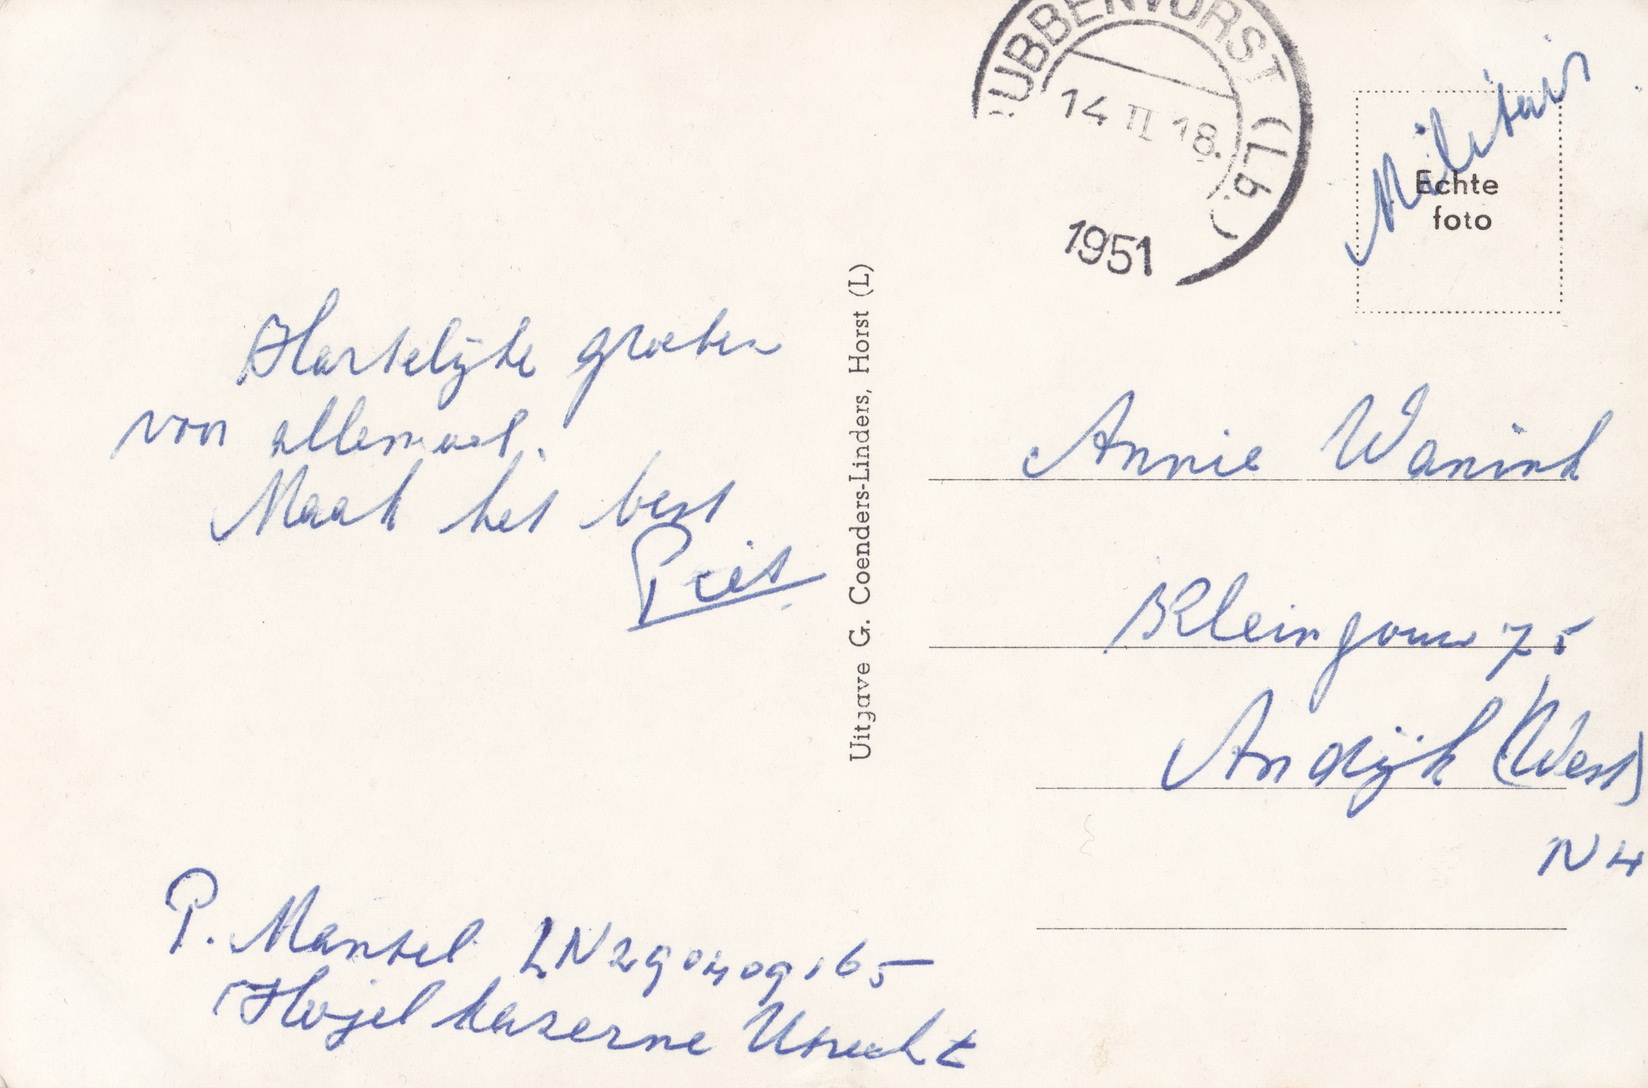 Hartelijke groeten
van allemaal.
Maak het best
Piet
P. Mantel LN 290409165
Hojel kazerne Utrecht
Uitgave G. Coenders-Linders, Horst (L)
UBBENVORST (Lb.)
14 II 18.
1951
Militair
Echte
foto
Annie Wanink
Kleingouw 75
Andijk (West)
NH